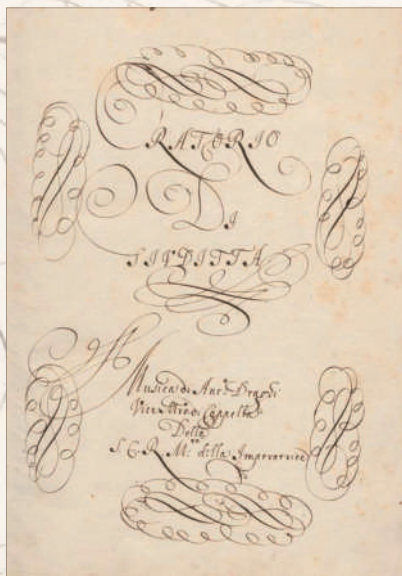 ORATORIO
DI
GIVDITTA
Musica di Ant.º
Vice di Cappella
Della
S. C. R. M.tà della Imperatrice